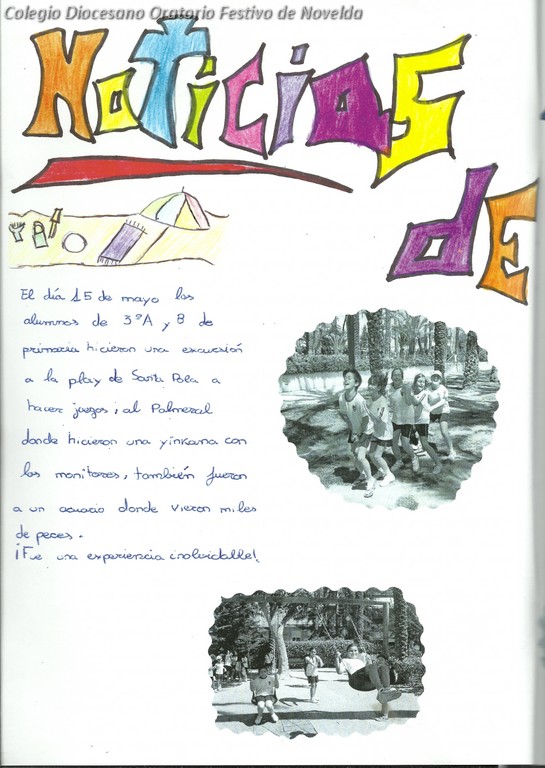 Colegio Diocesano Oratorio Festivo de Novelda
Noticias
de
El día 15 de mayo los
alumnos de 3ºA y B de
primaria hicieron una excursión
a la play de Santa Pola a
hacer juegos, al Palmeral
donde hicieron una yinkana con
los monitores, también fueron
a un acuario donde vieron miles
de peces.
¡Fue una experiencia inolvidable!